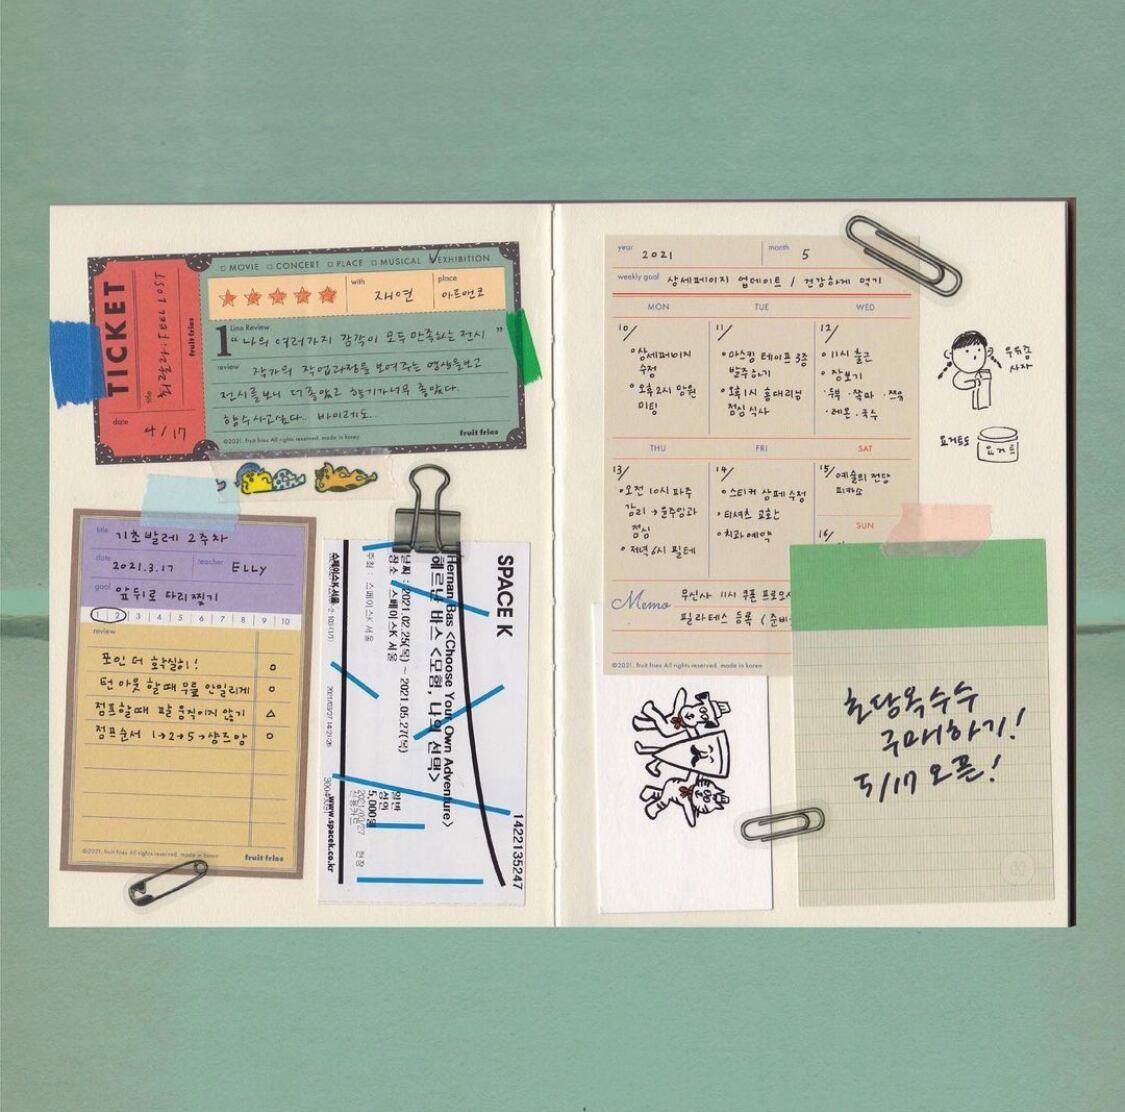 TICKET
title
date 4/17
fruit fries
MOVIE CONCERT PLACE MUSICAL EXHIBITION
with 재연
place 아트앤코
1 Line Review
"나의 여러가지 감각이 모두 만족하는 전시"
review 작가의 작업과정을 보여주는 영상을보고
전시를보니 더좋았고 향기가나서 좋았다.
향수사고싶다.. 바이레도...
©2021. fruit fries All rights reserved. made in korea
fruit fries
title 기초발레 2주차
date 2021.3.17 teacher Elly
goal 앞뒤로 다리찢기
1 2 3 4 5 6 7 8 9 10
review
포인 더 확실히! o
턴아웃 할때 무릎 안밀리게 o
점프할때 팔 움직이지 않기 △
점프순서 1→2→5→샹즈망 o
©2021. fruit fries All rights reserved. made in korea
fruit fries
SPACE K
1422135247
Hernan Bas <Choose Your Own Adventure>
헤르난 바스 <모험, 나의 선택>
날짜 : 2021.02.25(목) ~ 2021.05.27(목)
장소 : 스페이스K 서울
주최 : 스페이스K 서울
일반
성인
5,000원
신용카드
2021/03/27 현장
스페이스K 서울
2021/03/27 14:21:26
www.spacek.co.kr
year 2021 month 5
weekly goal 상세페이지 업데이트 / 건강하게 먹기
MON TUE WED
10/
•상세페이지
수정
•오후2시 망원
미팅
11/
•마스킹 테이프 3종
발주하기
•오후1시 홍대리님
점심식사
12/
•11시 출근
•장보기
·두부 ·쪽파 ·쯔유
·레몬 ·국수
THU FRI SAT
13/
•오전 10시 파주
감리 → 윤주임과
점심
•저녁 6시 필테
14/
•스티커 샘플 수정
•티셔츠 교환
•치과예약
15/
예술의 전당
피카소
SUN
16/
Memo 무신사 11시 쿠폰 프로모
필라테스 등록 (준비
©2021. fruit fries All rights reserved. made in korea
우유좀
사자
요거트도
요거트
초당옥수수
구매하기!
5/17 오픈!